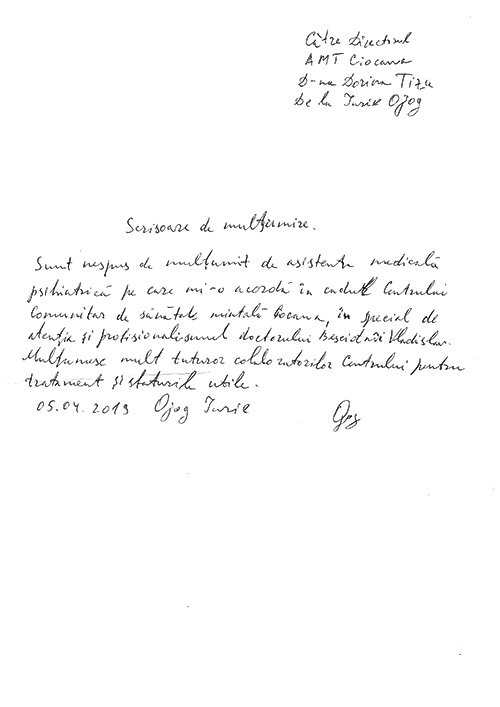 Către Directorul
AMT Ciocana
D-na Dorina Tizu
De la Iurie Ojog
Scrisoare de mulțumire.
Sunt nespus de mulțumit de asistența medicală
psihiatrică pe care mi-o acordă în cadrul Centrului
Comunitar de sănătate mintală Ciocana, în special de
atenția și profisionalismul doctorului Vladislav.
Mulțumesc mult tuturor colaboratorilor Centrului pentru
tratament și sfaturile utile.
05.04.2019 Ojog Iurie